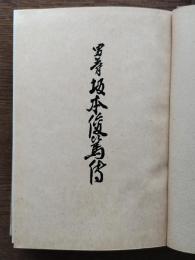 男爵坂本俊篤傳